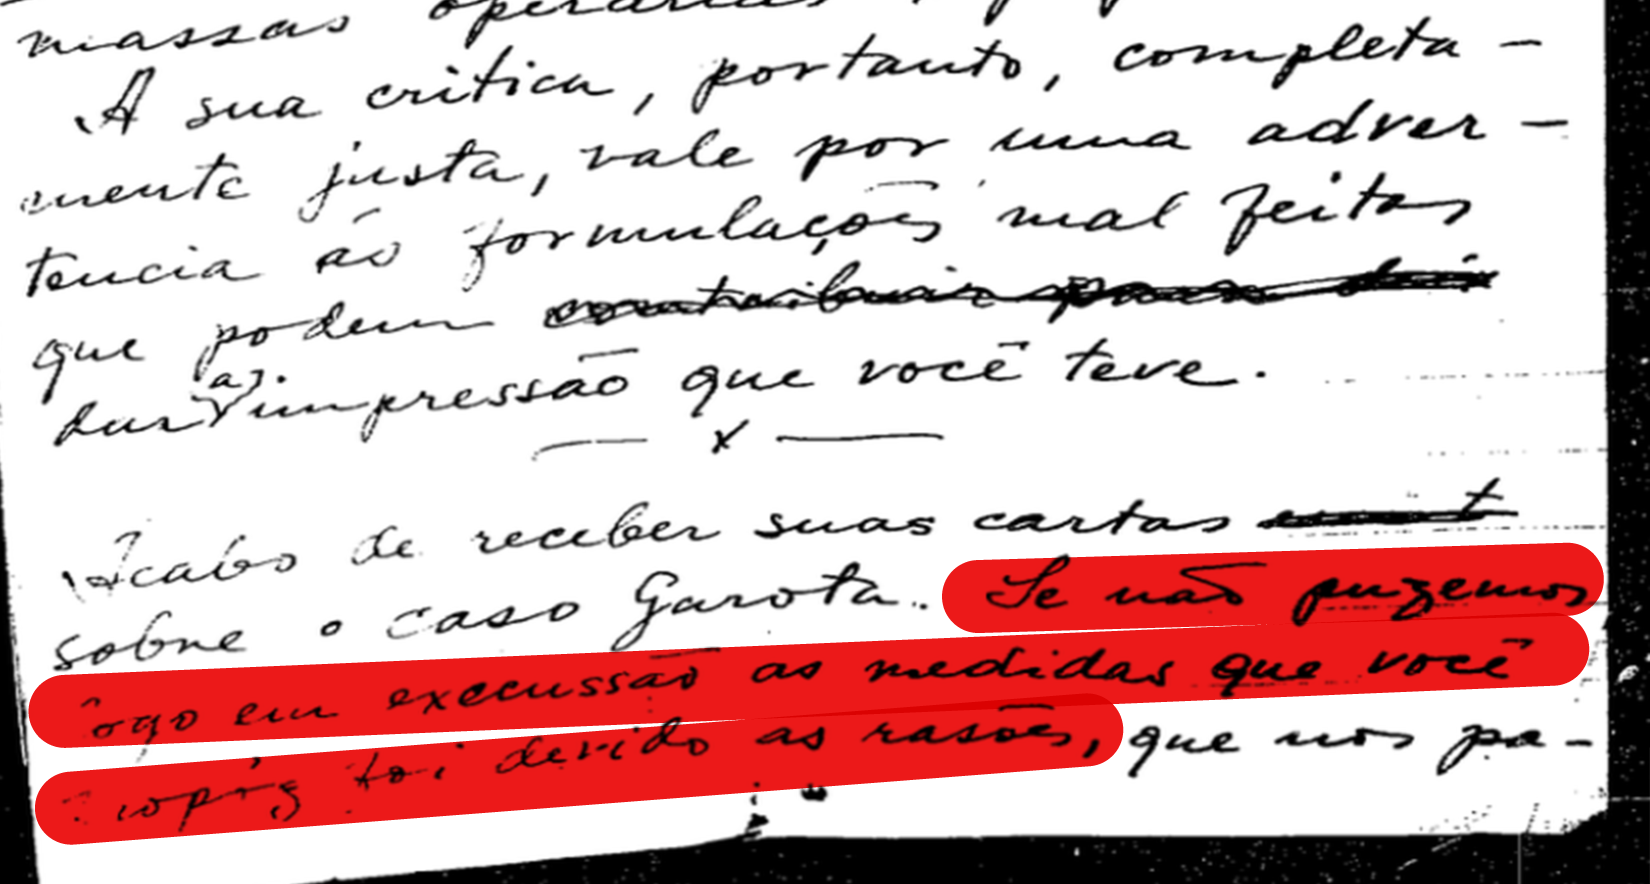 massas operarias
A sua critica, portanto, completa-
mente justa, vale por uma adver-
tencia ás formulações mal feitas
que podem contribuir para
dar a impressão que você teve.
x
Acabo de receber suas cartas
sobre o caso Garota. Se não puzemos
logo em excussão as medidas que você
propôz foi devido as rasões, que nos pa-